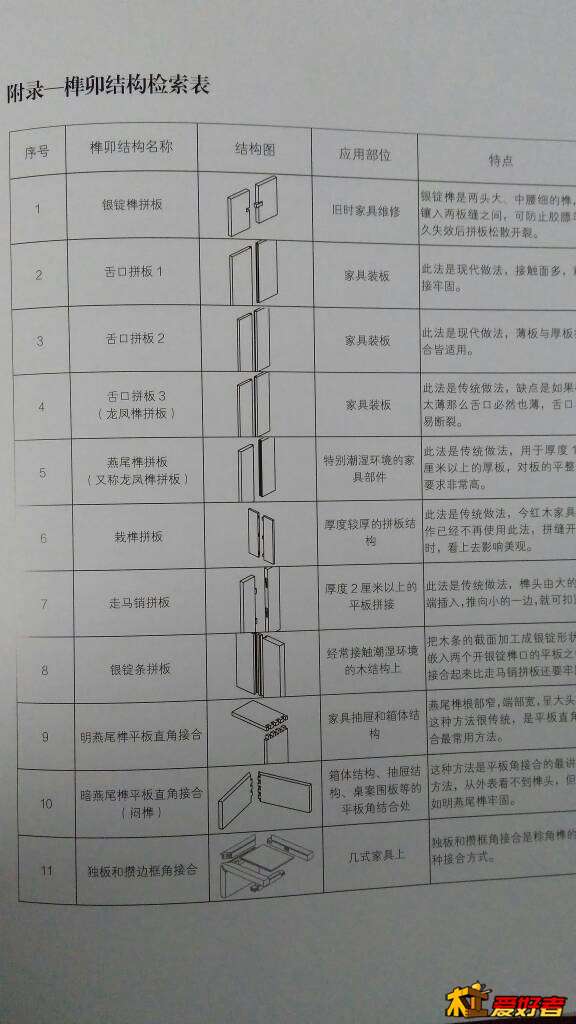 附录一榫卯结构检索表
序号 榫卯结构名称 结构图 应用部位 特点
1 银锭榫拼板 旧时家具维修 银锭榫是两头大、中腰细的榫,
镶入两板缝之间,可防止胶膘
久失效后拼板松散开裂。
2 舌口拼板1 家具装板 此法是现代做法,接触面多,
接牢固。
3 舌口拼板2 家具装板 此法是现代做法,薄板与厚板
合皆适用。
4 舌口拼板3
(龙凤榫拼板) 家具装板 此法是传统做法,缺点是如果
太薄那么舌口必然也薄,舌口
易断裂。
5 燕尾榫拼板
(又称龙凤榫拼板) 特别潮湿环境的家
具部件 此法是传统做法,用于厚度1
厘米以上的厚板,对板的平整
要求非常高。
6 栽榫拼板 厚度较厚的拼板结
构 此法是传统做法,今红木家具
作已经不再使用此法,拼缝开
时,看上去影响美观。
7 走马销拼板 厚度2厘米以上的
平板拼接 此法是传统做法,榫头由大的
端插入,推向小的一边,就可扣
8 银锭条拼板 经常接触潮湿环境
的木结构上 把木条的截面加工成银锭形状
嵌入两个开银锭榫口的平板之
接合起来比走马销拼板还要牢
9 明燕尾榫平板直角接合 家具抽屉和箱体结
构 燕尾榫根部窄,端部宽,呈大头
这种方法很传统,是平板直角
合最常用方法。
10 暗燕尾榫平板直角接合
(闷榫) 箱体结构、抽屉结
构、桌案围板等的
平板角结合处 这种方法是平板角接合的最讲
方法,从外表看不到榫头,但
如明燕尾榫牢固。
11 独板和攒边框角接合 几式家具上 独板和攒框角接合是粽角榫的
种接合方式。
木工爱好者